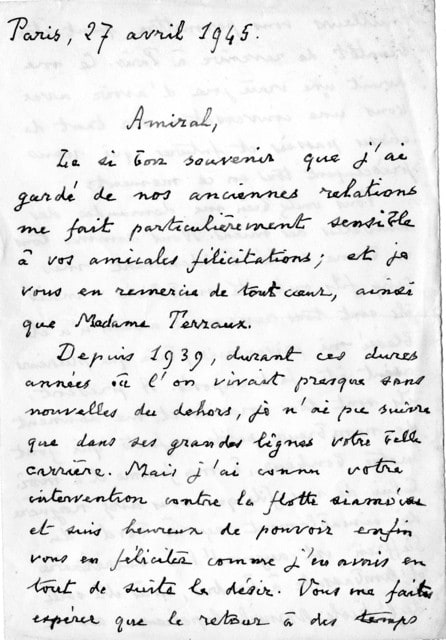 Paris, 27 avril 1945.
Amiral,
Le si bon souvenir que j'ai
gardé de nos anciennes relations
me fait particulièrement sensible
à vos amicales félicitations ; et je
vous en remercie de tout cœur, ainsi
que Madame Terraux.
Depuis 1939, durant ces dures
années où l'on vivait presque sans
nouvelles du dehors, je n'ai pu suivre
que dans ses grandes lignes votre belle
carrière. Mais j'ai connu votre
intervention contre la flotte siamoise
et suis heureux de pouvoir enfin
vous en féliciter comme j'en avais eu
tout de suite le désir. Vous me faites
espérer que le retour à des temps